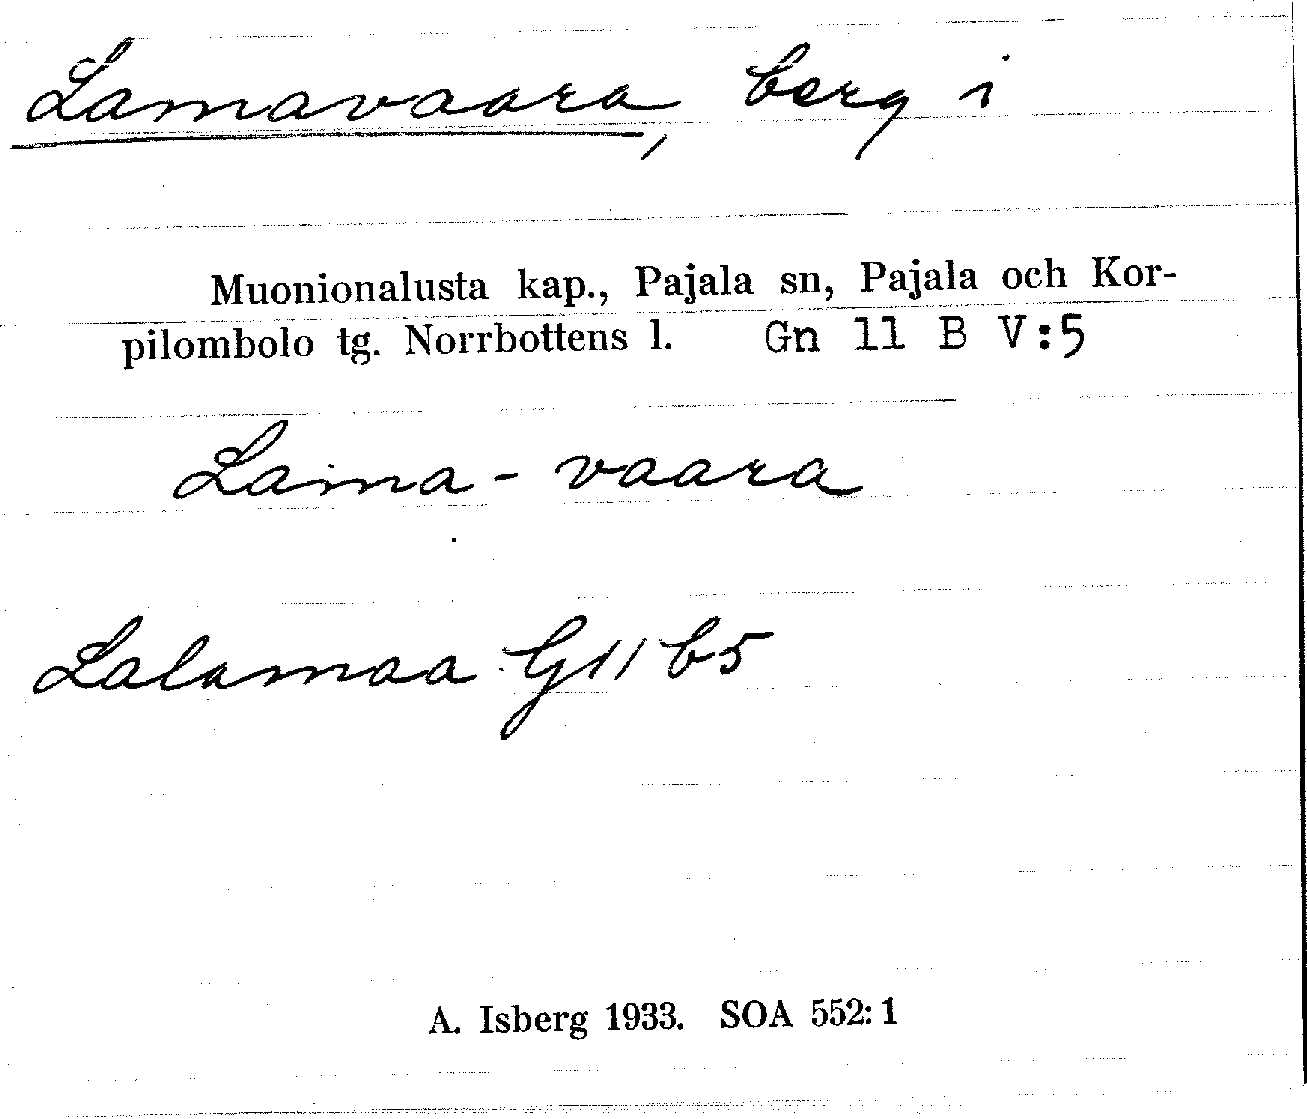 Lamavaara, berg i
Muonionalusta kap., Pajala sn, Pajala och Kor-
pilombolo tg. Norrbottens l. Gn 11 B V:5
Lama-vaara
Lalamaa G11 b5
A. Isberg 1933. SOA 552:1